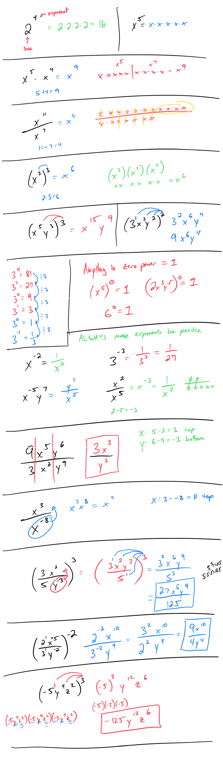 2⁴ ← exponent = 2·2·2·2 = 16
↑
base
x⁵ = x·x·x·x·x
x⁵ · x⁴ = x⁹
5+4=9
x⁵ x⁴
x·x·x·x·x | x·x·x·x = x⁹
x¹¹ / x⁷ = x⁴
11-7=4
x·x·x·x·x·x·x·x·x·x·x
x·x·x·x·x·x·x
(x²)³ = x⁶
2·3=6
(x²)(x²)(x²)
xx xx xx = x⁶
(x⁵y³)³ = x¹⁵ y⁹
(3x³y²)² 3² x⁶ y⁴
9x⁶y⁴
3⁴ = 81
3³ = 27
3² = 9
3¹ = 3
3⁰ = 1
3⁻¹ = 1/3
÷3
÷3
÷3
÷3
÷3
Anything to zero power = 1
(x⁵)⁰ = 1 (2x³y⁵)⁰ = 1
6⁰ = 1
ALWAYS make exponents be positive
x⁻² = 1/x²
3⁻³ = 1/3³ = 1/27
x⁻⁵y⁷ = y⁷/x⁵
x²/x⁵ = x⁻³ = 1/x³
2-5=-3
9x⁵y⁶ / 3x²y⁹
3x³ / y³
x: 5-2=3 top
y: 6-9=-3 bottom
x³ / x⁻⁸
x³x⁸ = x¹¹
x: 3--8 = 11 top
(3x² / 5y⁻³)³ = (3x²y³ / 5)³ = 3³x⁶y⁹ / 5³
= 27x⁶y⁹ / 125
(2x⁵ / 3y⁻²)⁻² 2⁻²x⁻¹⁰ / 3⁻²y⁴ = 3²x¹⁰ / 2²y⁴ = 9x¹⁰ / 4y⁴
(-5y⁴z²)³ (-5)³ y¹² z⁶
(-5)(-5)(-5)
(-5y⁴z²)(-5y⁴z²)(-5y⁴z²)
-125y¹²z⁶